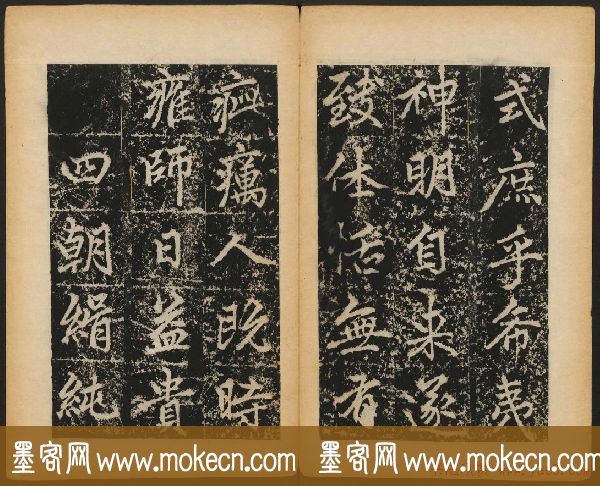 式庶乎希夷
神明自来遂
致休無有
疵癘人既時
雍師日益貴
四朝純
墨客网 www.mokecn.com
墨客网 www.mokecn.com